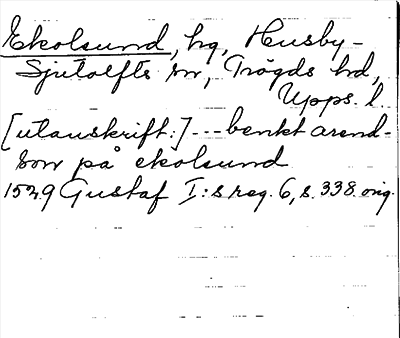 Ekolsund, hg, Husby-
Sjutolfts sn, Trögds hd,
Upps. l.
[utanskrift:] --- benkt arend-
son på ekolsund
1529 Gustaf I:s reg. 6, s. 338. orig.